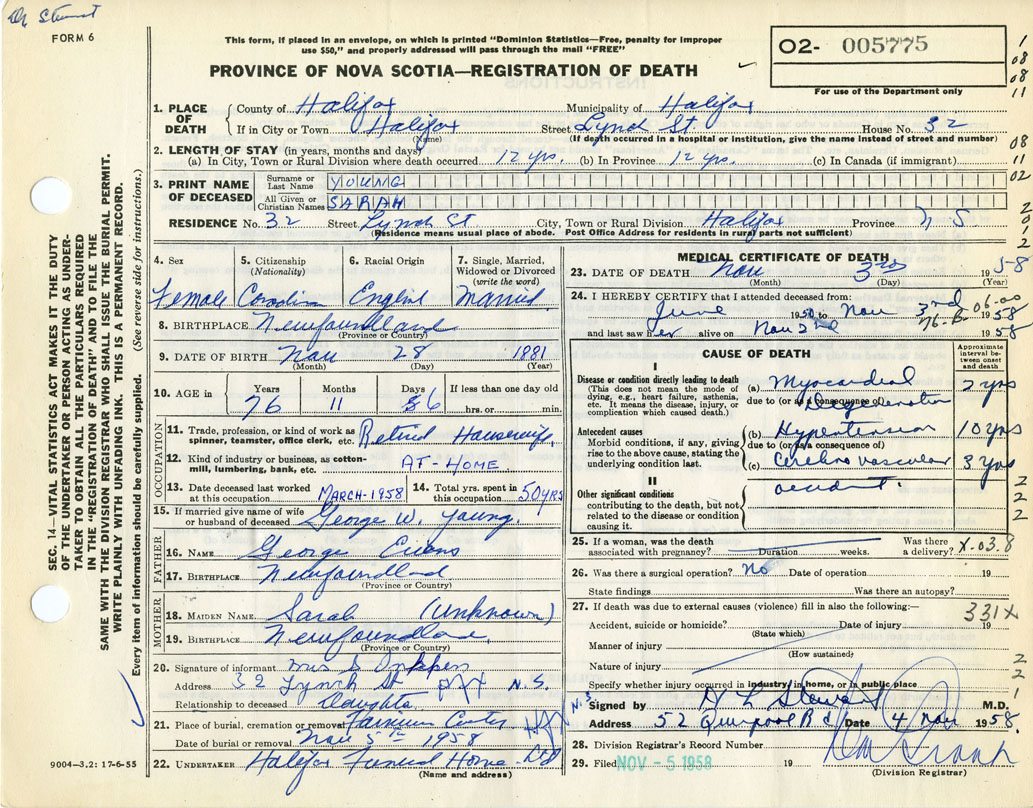 Dr Stewart
FORM 6
This form, if placed in an envelope, on which is printed "Dominion Statistics—Free, penalty for improper
use $50," and properly addressed will pass through the mail "FREE"
PROVINCE OF NOVA SCOTIA—REGISTRATION OF DEATH
O2- 005775
For use of the Department only
1. PLACE OF DEATH County of Halifax Municipality of Halifax
If in City or Town Halifax Street Lynch St House No. 32
(Name) (If death occurred in a hospital or institution, give the name instead of street and number)
2. LENGTH OF STAY (in years, months and days)
(a) In City, Town or Rural Division where death occurred 12 yrs. (b) In Province 12 yrs. (c) In Canada (if immigrant)
3. PRINT NAME OF DECEASED Surname or Last Name YOUNG
All Given or Christian Names SARAH
RESIDENCE No. 32 Street Lynch St. City, Town or Rural Division Halifax Province N S
(Residence means usual place of abode. Post Office Address for residents in rural parts not sufficient)
4. Sex Female
5. Citizenship (Nationality) Canadian
6. Racial Origin English
7. Single, Married, Widowed or Divorced (write the word) Married
8. BIRTHPLACE Newfoundland
(Province or Country)
9. DATE OF BIRTH Nov 28 1881
(Month) (Day) (Year)
10. AGE in Years 76 Months 11 Days 6 If less than one day old hrs. or min.
OCCUPATION
11. Trade, profession, or kind of work as spinner, teamster, office clerk, etc. Retired Housewife
12. Kind of industry or business, as cotton-mill, lumbering, bank, etc. AT-HOME
13. Date deceased last worked at this occupation MARCH-1958
14. Total yrs. spent in this occupation 50 YRS
15. If married give name of wife or husband of deceased George W. Young.
FATHER
16. NAME George Evans
17. BIRTHPLACE Newfoundland
(Province or Country)
MOTHER
18. MAIDEN NAME Sarah (Unknown)
19. BIRTHPLACE Newfoundland
(Province or Country)
20. Signature of informant Mrs S
Address 32 Lynch St Hfx N.S
Relationship to deceased Daughter
21. Place of burial, cremation or removal Fairview Cemetery Hfx
Date of burial or removal Nov 5th 1958
22. UNDERTAKER Halifax Funeral Home
(Name and address)
9004—3.2: 17-6-55
SEC. 14—VITAL STATISTICS ACT MAKES IT THE DUTY
OF THE UNDERTAKER OR PERSON ACTING AS UNDER-
TAKER TO OBTAIN ALL THE PARTICULARS REQUIRED
IN THE "REGISTRATION OF DEATH" AND TO FILE THE
SAME WITH THE DIVISION REGISTRAR WHO SHALL ISSUE THE BURIAL PERMIT.
WRITE PLAINLY WITH UNFADING INK. THIS IS A PERMANENT RECORD.
Every item of information should be carefully supplied. (See reverse side for instructions.)
MEDICAL CERTIFICATE OF DEATH
23. DATE OF DEATH Nov 3rd 1958
(Month) (Day) (Year)
24. I HEREBY CERTIFY that I attended deceased from:
June 1950 to Nov 2nd 1958
and last saw her alive on Nov 2nd 1958
06-00
76-B
CAUSE OF DEATH
Approximate interval between onset and death
I
Disease or condition directly leading to death
(This does not mean the mode of dying, e.g., heart failure, asthenia, etc. It means the disease, injury, or complication which caused death.)
(a) Myocardial Degeneration 2 yrs
due to (or as a consequence of)
Antecedent causes
Morbid conditions, if any, giving rise to the above cause, stating the underlying condition last.
(b) Hypertension 10 yrs
due to (or as a consequence of)
(c) Cerebro vascular accident. 3 yrs
II
Other significant conditions
contributing to the death, but not related to the disease or condition causing it.
25. If a woman, was the death associated with pregnancy? Duration weeks. Was there a delivery? X-03.8
26. Was there a surgical operation? No Date of operation 19
State findings Was there an autopsy?
27. If death was due to external causes (violence) fill in also the following:—
331X
Accident, suicide or homicide? Date of injury 19
(State which)
Manner of injury
(How sustained)
Nature of injury
Specify whether injury occurred in industry, in home, or in public place
Signed by H L Stewart M.D.
N.S
Address 52 Quinpool Rd Date 4 Nov 1958.
28. Division Registrar's Record Number
29. Filed NOV - 5 1958 19
(Division Registrar)
1
08
08
11
08
11
02
2
2
1
2
2
2
2
2
2
1